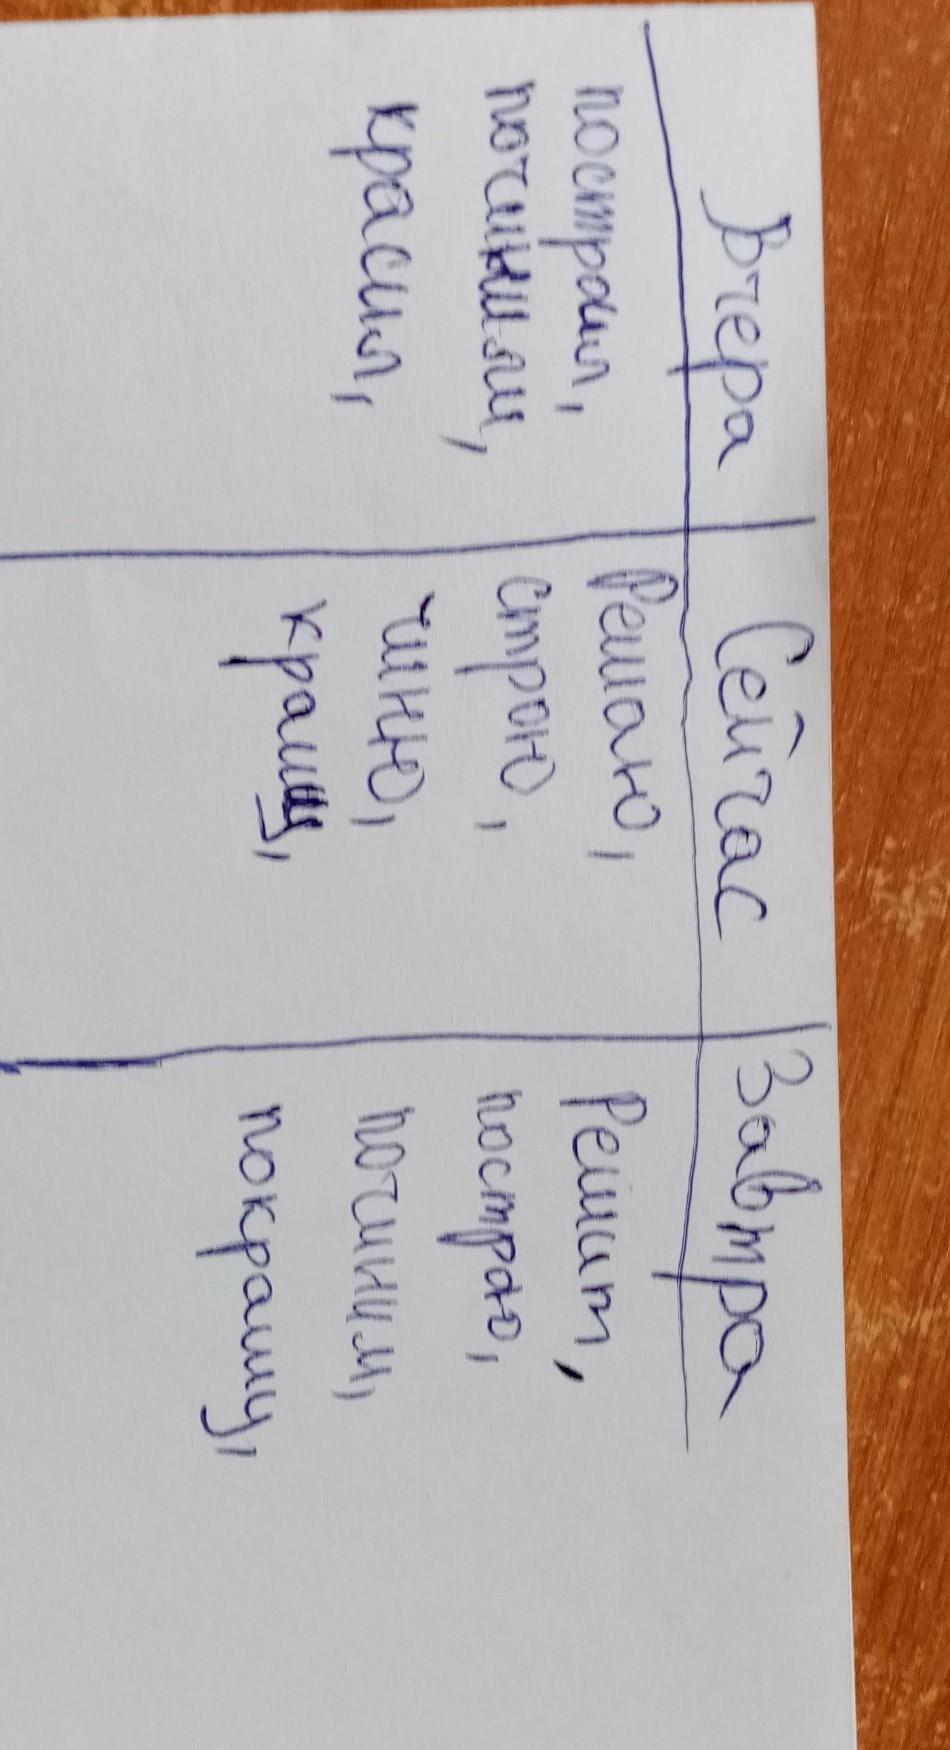 Вчера Сейчас Завтра
построил, Решаю, Решит,
починили, строю, построю,
красил, чиню, починим,
крашу, покрашу,